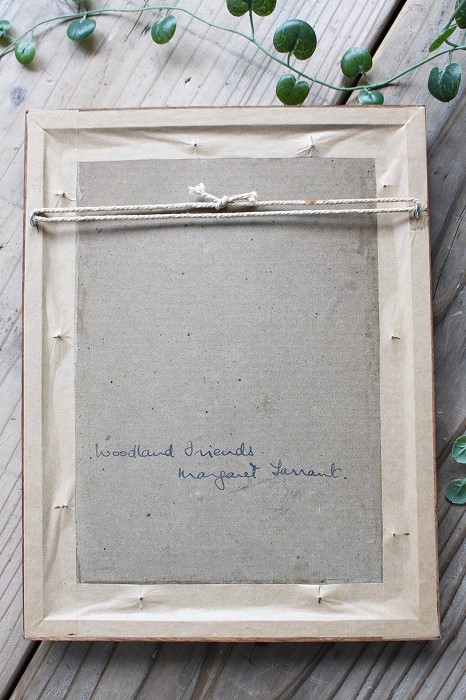 Woodland Friends
Margaret Tarrant.